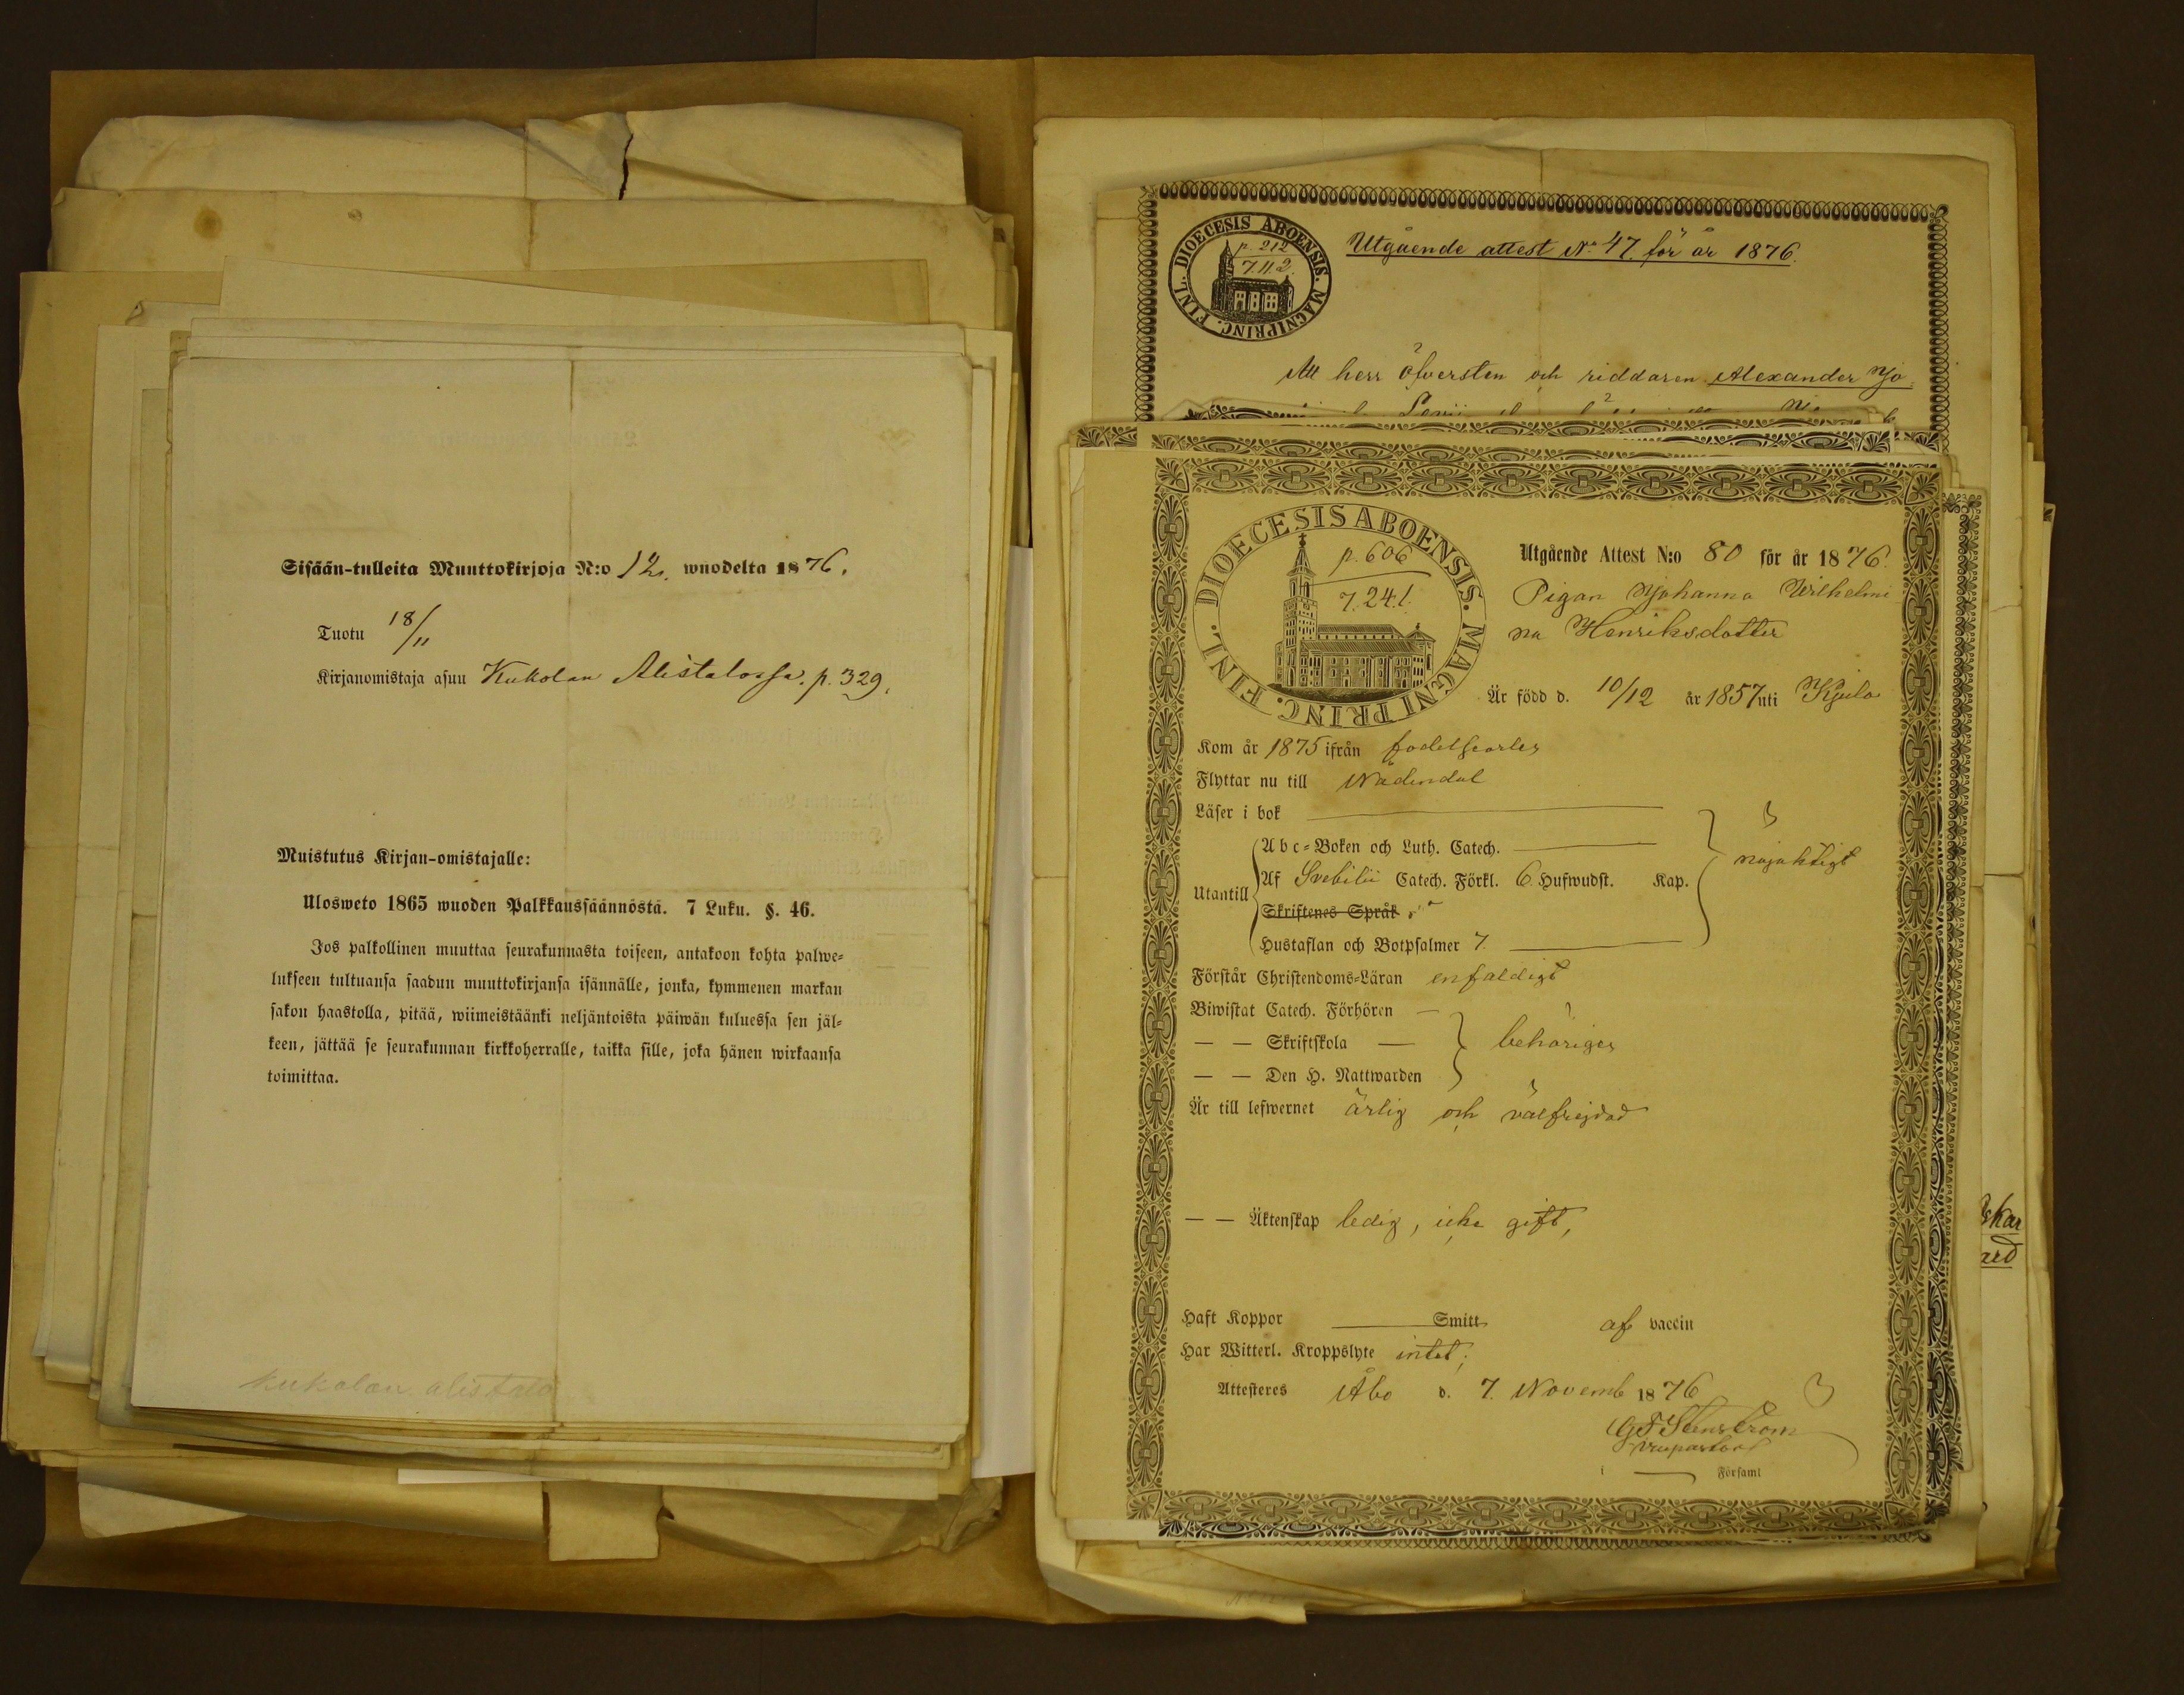 Sisään-tulleita Muuttokirjoja N:o 12. wuodelta 1876.
Tuotu 18/11
Kirjanomistaja asuu Kukolan Alistalossa. p. 329.
Muistutus Kirjan-omistajalle:
Ulosweto 1865 wuoden Palkkaussäännöstä. 7 Luku. §. 46.
Jos palkollinen muuttaa seurakunnasta toiseen, antakoon kohta palwe-
lukseen tultuansa saadun muuttokirjansa isännälle, jonka, kymmenen markan
sakon haastolla, pitää, wiimeistäänki neljäntoista päiwän kuluessa sen jäl-
keen, jättää se seurakunnan kirkkoherralle, taikka sille, joka hänen wirkaansa
toimittaa.
Kukolan alistalo
DIOECESIS ABOENSIS. MAGNIPRINC. FINL.
p. 212
7.11.2.
Utgående attest No 47. för år 1876.
Att herr öfversten och riddaren Alexander Jo-
DIOECESIS ABOENSIS. MAGNIPRINC. FINL.
p. 606
7.24.1.
Utgående Attest N:o 80 för år 1876.
Pigan Johanna Wilhelmi
na Henriksdotter
Är född d. 10/12 år 1857 uti Kjulo
Kom år 1875 ifrån födelseorten
Flyttar nu till Nådendal
Läser i bok
Utantill
Abc-Boken och Luth. Catech.
Af Svebilii Catech. Förkl. 6 Hufwudst. Kap.
Skriftenes Språk
Hustaflan och Botpsalmer 7
nöjaktigt
Förstår Christendoms-Läran enfaldigt
Biwistat Catech. Förhören —
— — Skriftskola —
— — Den H. Nattwarden
behörigen
Är till lefwernet ärlig och välfrejdad
— — Äktenskap ledig, icke gift,
Haft Koppor Smitt af vaccin
Har Witterl. Kroppslyte intet;
Attesteres Åbo d. 7. Novemb 1876
i Församl
skar
red